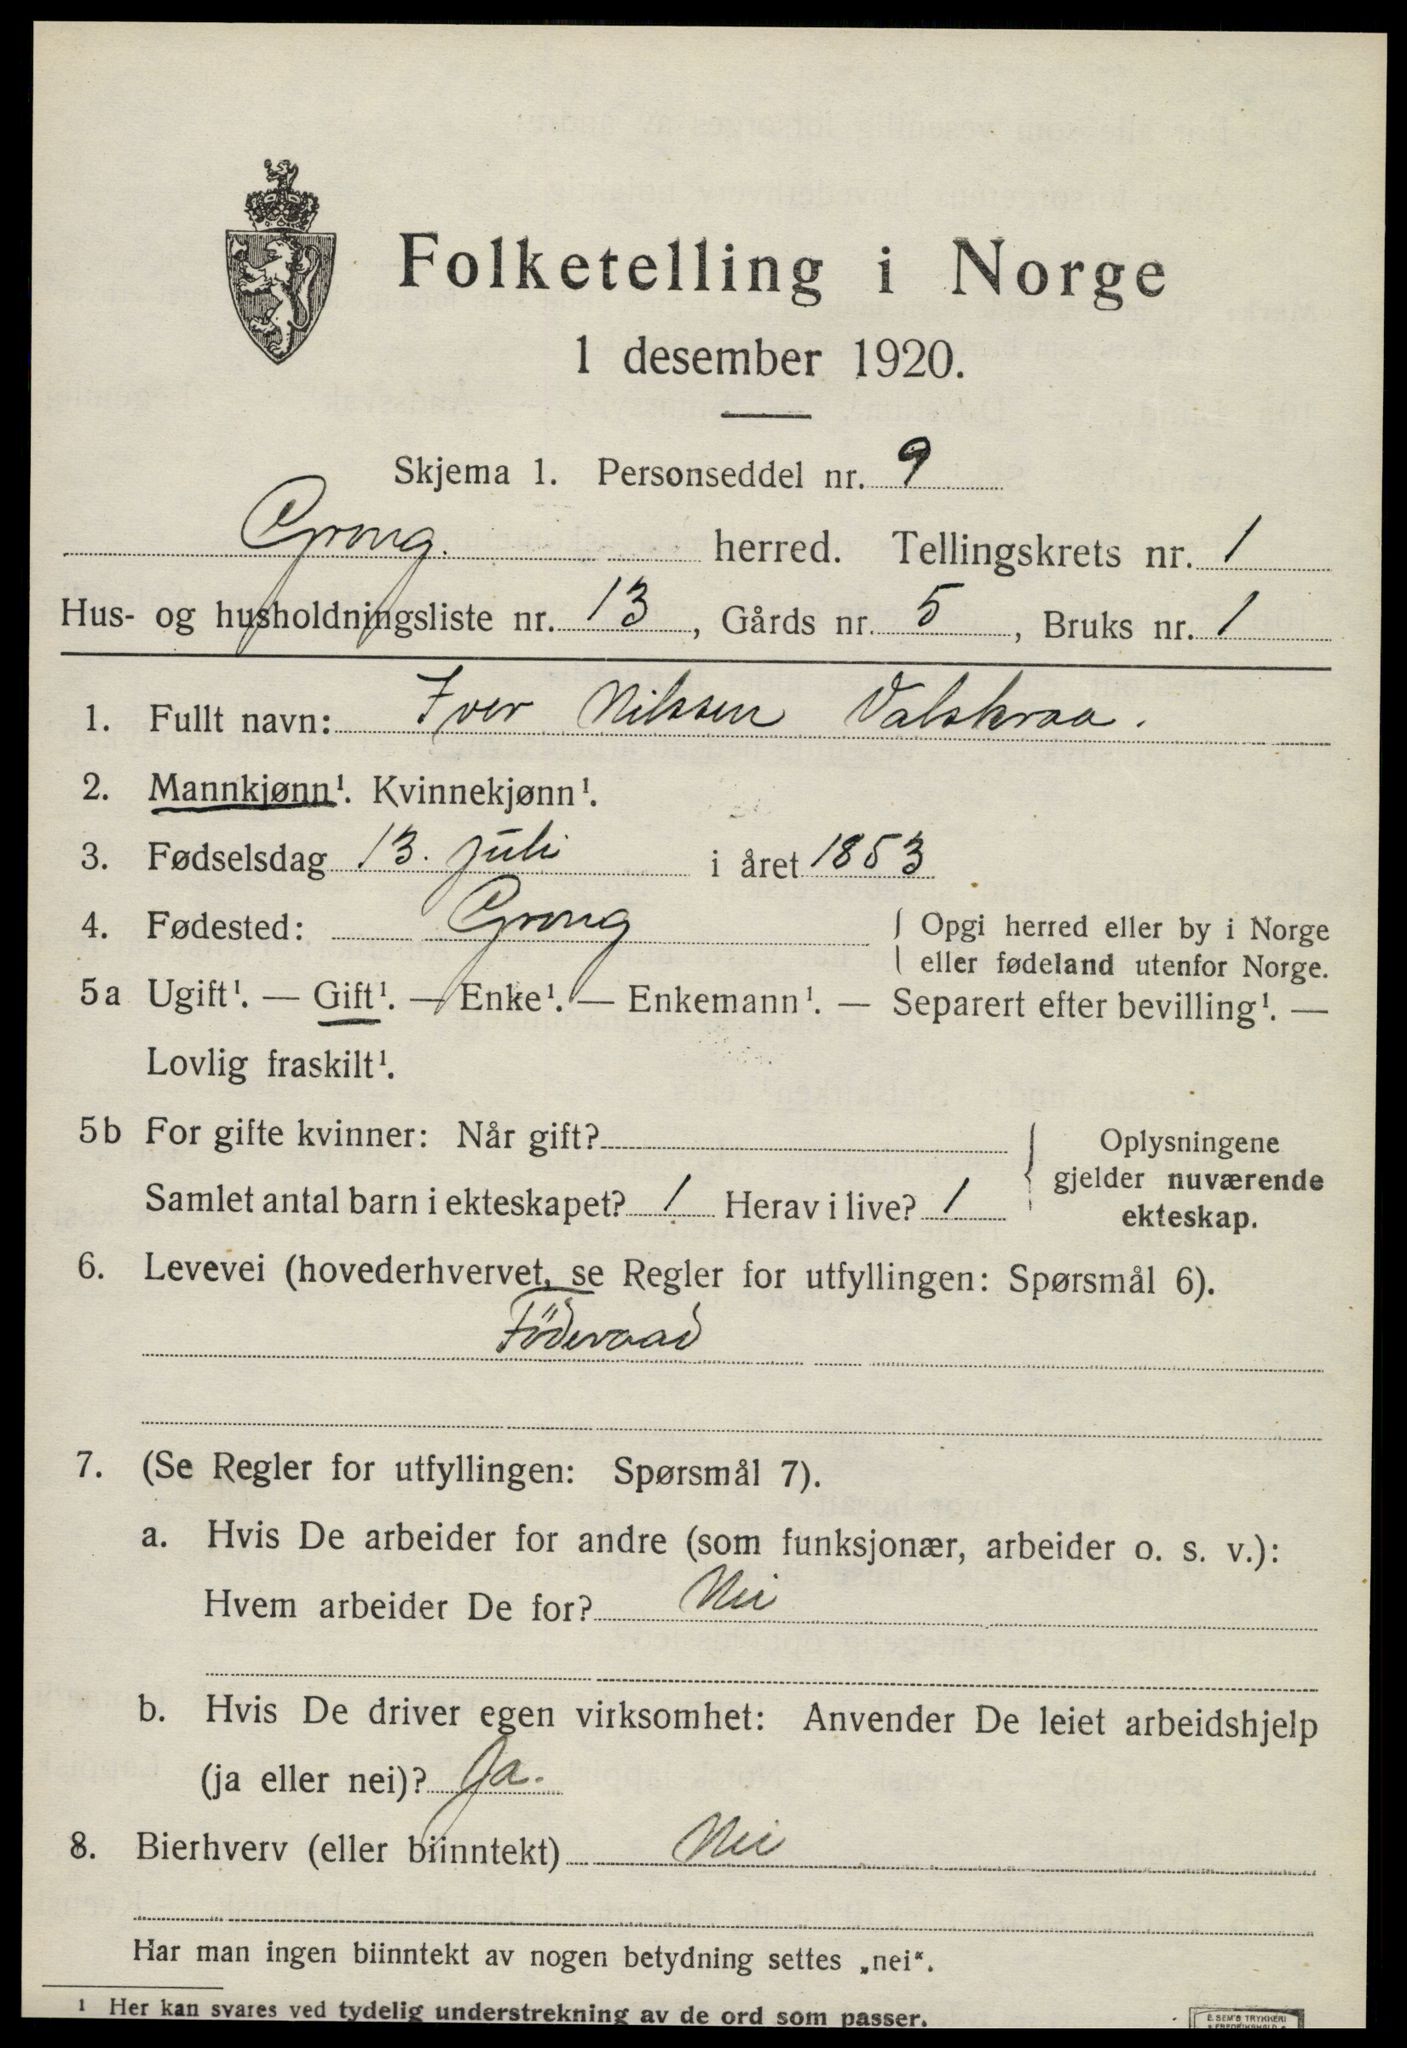 Folketelling i Norge
1 desember 1920.
Skjema 1. Personseddel nr. 9
Grong. herred. Tellingskrets nr. 1
Hus- og husholdningsliste nr. 13, Gårds nr. 5, Bruks nr. 1
1. Fullt navn: Iver Nilssen Valskraa.
2. Mannkjønn¹. Kvinnekjønn¹.
3. Fødselsdag 13. juli i året 1853
4. Fødested: Grong { Opgi herred eller by i Norge
eller fødeland utenfor Norge.
5a Ugift¹. — Gift¹. — Enke¹. — Enkemann¹. — Separert efter bevilling¹. —
Lovlig fraskilt¹.
5b For gifte kvinner: Når gift? { Oplysningene
gjelder nuværende
Samlet antal barn i ekteskapet? 1 Herav i live? 1
ekteskap.
6. Levevei (hovederhvervet, se Regler for utfyllingen: Spørsmål 6).
Föderaad
7. (Se Regler for utfyllingen: Spørsmål 7).
a. Hvis De arbeider for andre (som funksjonær, arbeider o. s. v.):
Hvem arbeider De for? Nei
b. Hvis De driver egen virksomhet: Anvender De leiet arbeidshjelp
(ja eller nei)? Ja.
8. Bierhverv (eller biinntekt) Nei
Har man ingen biinntekt av nogen betydning settes „nei“.
¹ Her kan svares ved tydelig understrekning av de ord som passer.
E. SEM'S TRYKKERI
FREDRIKSHALD